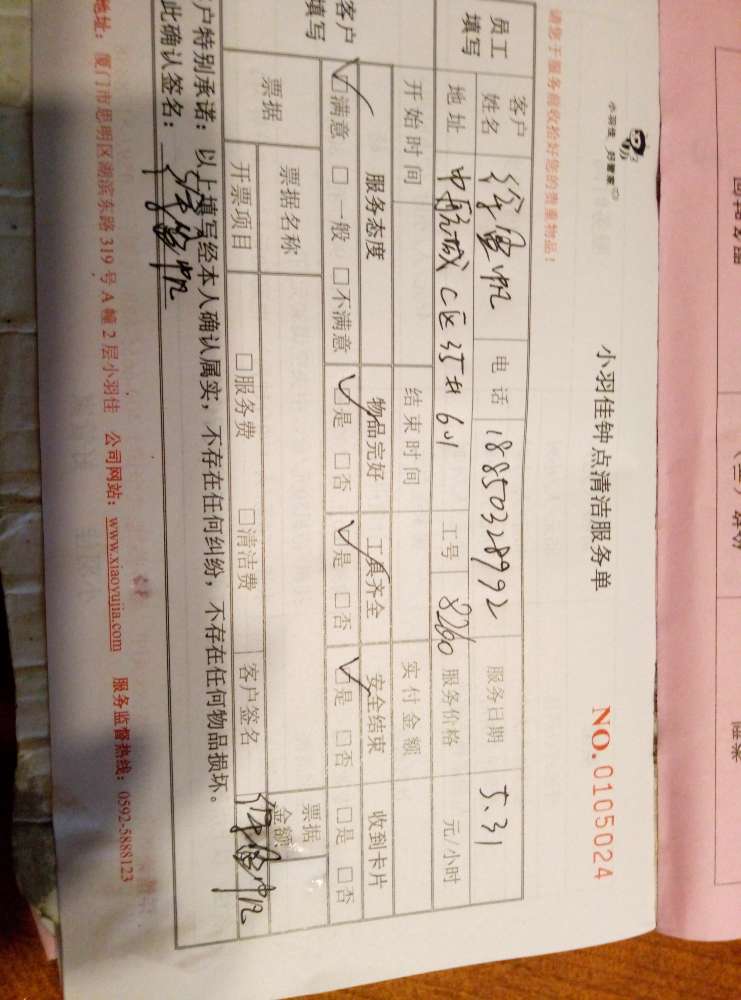 小羽佳 好管家
小羽佳钟点清洁服务单
NO.0105024
请您于服务前收拾好您的贵重物品！
员工填写 客户姓名 电话 18850328992 服务日期 5.31
地址 中航城C区35#601 工号 8260 服务价格 元/小时
开始时间 结束时间 实付金额
客户填写 服务态度 物品完好 工具齐全 安全结束 收到卡片
☑满意 □一般 □不满意 ☑是 □否 ☑是 □否 ☑是 □否 □是 □否
票据 票据名称 票据金额
开票项目 □服务费 □清洁费 客户签名
户特别承诺：以上填写经本人确认属实，不存在任何纠纷，不存在任何物品损坏。
此确认签名：
地址：厦门市思明区湖滨东路319号A幢2层小羽佳 公司网站：www.xiaoyujia.com 服务监督热线：0592-5888123